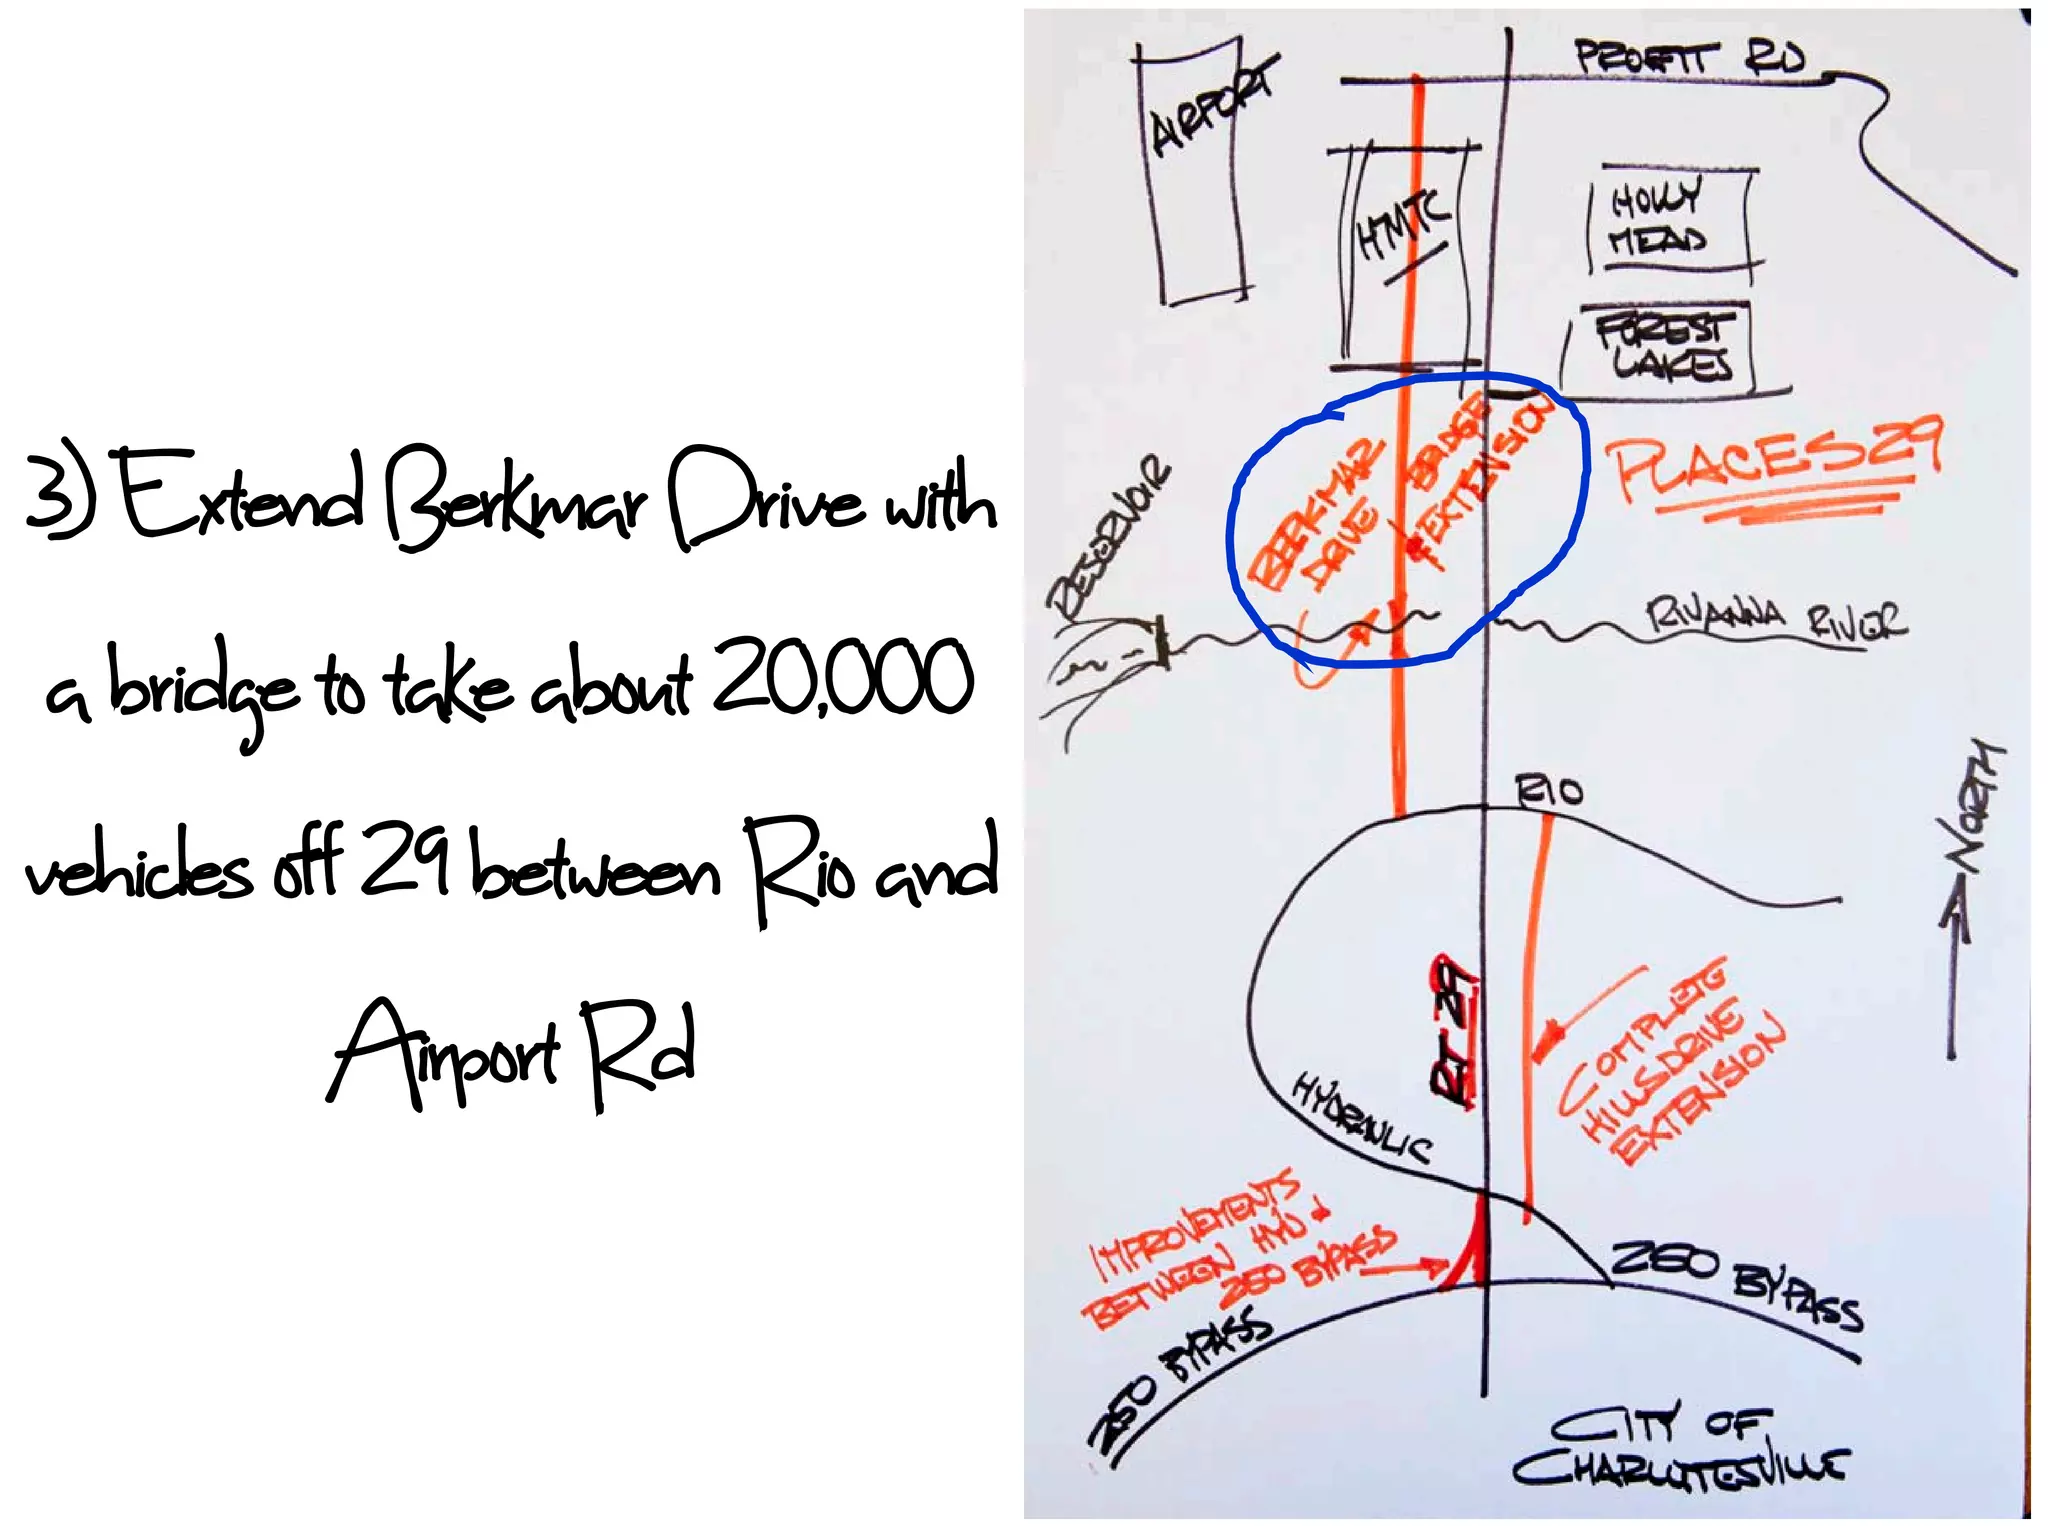 3) Extend Berkmar Drive with
a bridge to take about 20,000
vehicles off 29 between Rio and
Airport Rd
PROFFIT RD
AIRPORT
HMTC
HOLLY
MEAD
FOREST
LAKES
PLACES29
BERKMAR
DRIVE
BRIDGE
& EXTENSION
RESERVOIR
RIVANNA RIVER
RIO
NORTH
RT 29
COMPLETE
HILLSDRIVE
EXTENSION
HYDRAULIC
IMPROVEMENTS
BETWEEN HYD &
250 BYPASS
250 BYPASS
250 BYPASS
CITY OF
CHARLOTTESVILLE